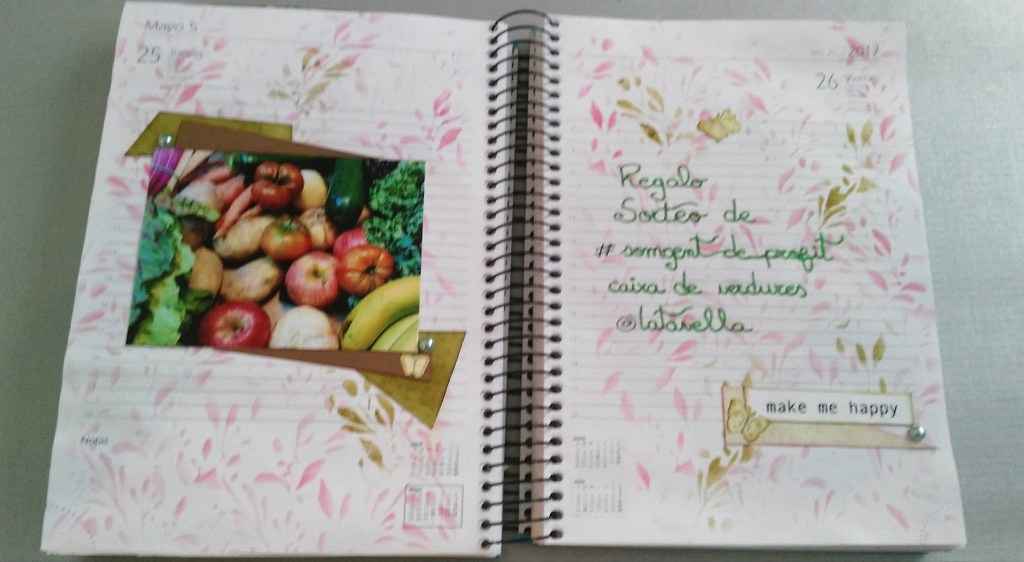 Mayo 5
25
Notas
2012
26
Regalo
Sorteo de
# somgent de profit
caixa de verdures
@latavella
make me happy